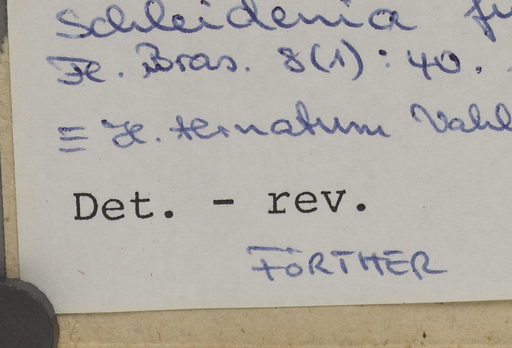 Schleidenia fu
Fl. Bras. 8(1): 40.
≡ H. ternatum Vahl
Det. - rev.
FÖRTHER